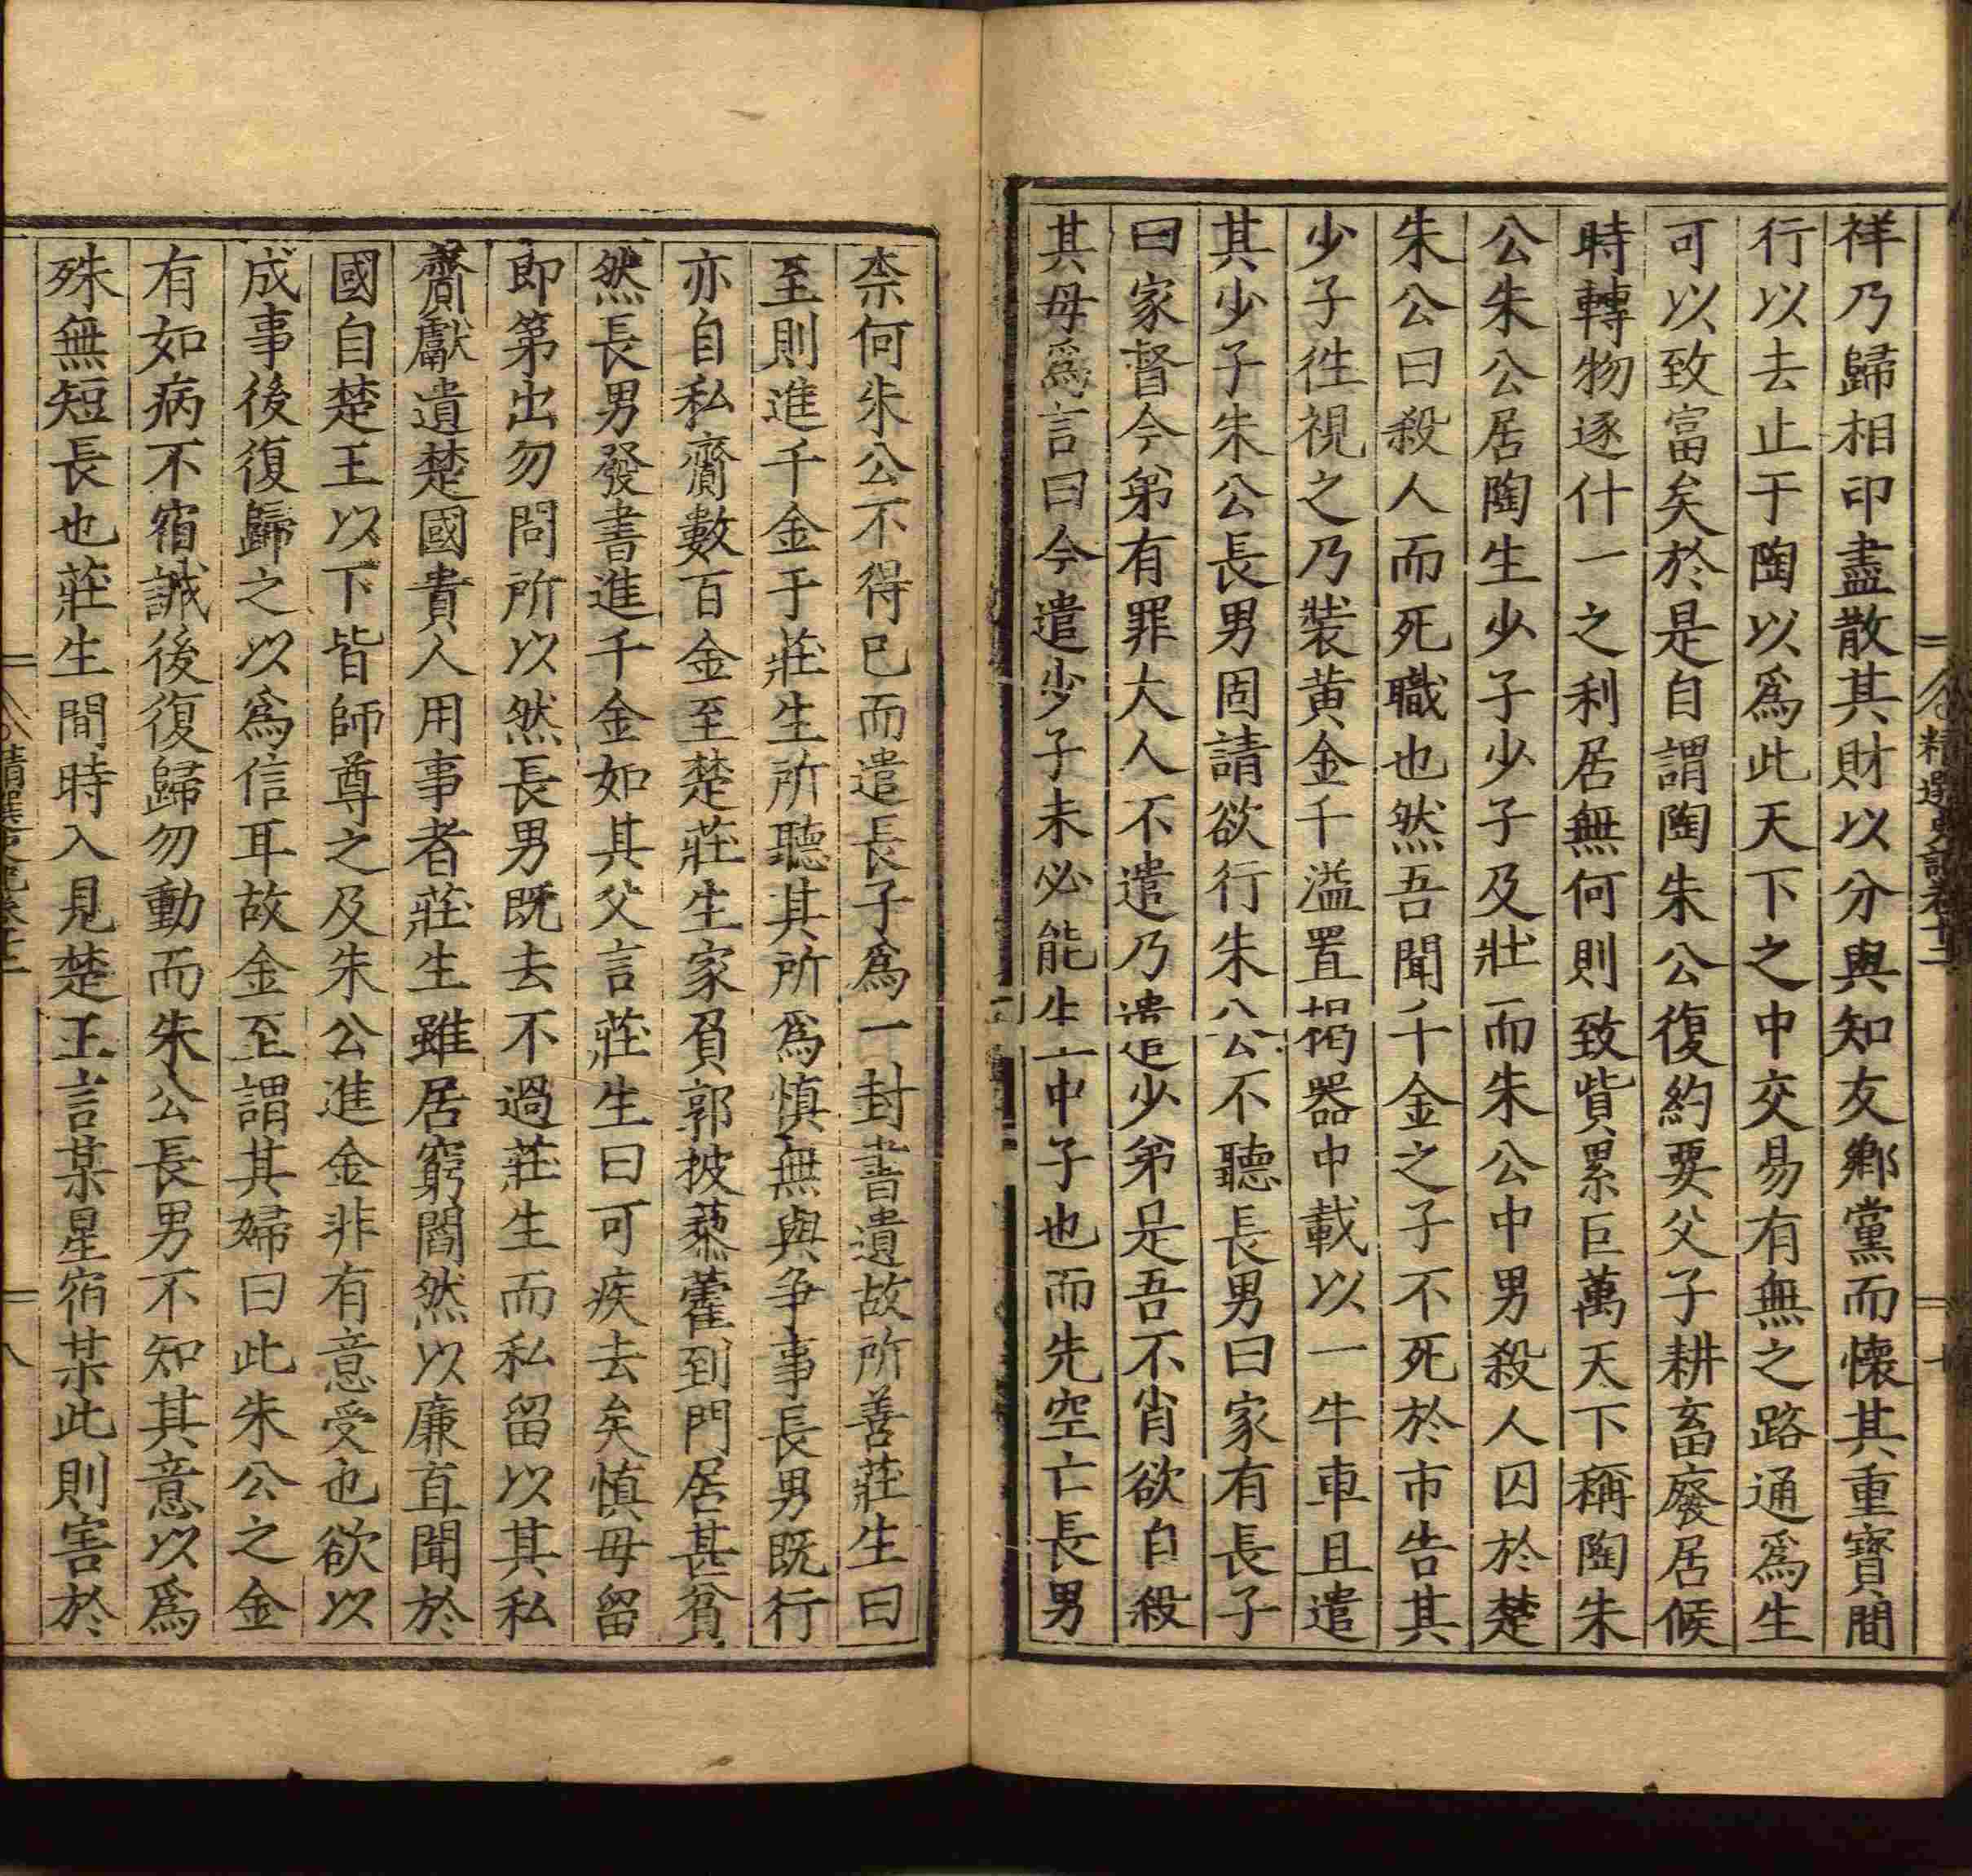 祥乃歸相印盡散其財以分與知友鄉黨而懷其重寶間
行以去止于陶以爲此天下之中交易有無之路通爲生
可以致富矣於是自謂陶朱公復約要父子耕畜廢居候
時轉物逐什一之利居無何則致貲累巨萬天下稱陶朱
公朱公居陶生少子少子及壯而朱公中男殺人囚於楚
朱公曰殺人而死職也然吾聞千金之子不死於市告其
少子往視之乃裝黄金千溢置褐器中載以一牛車且遣
其少子朱公長男固請欲行朱公不聽長男曰家有長子
曰家督今弟有罪大人不遣乃遣少弟是吾不肖欲自殺
其母爲言曰今遣少子未必能生中子也而先空亡長男
柰何朱公不得已而遣長子爲一封書遺故所善莊生曰
至則進千金于莊生所聽其所爲慎無與争事長男既行
亦自私齎數百金至楚莊生家負郭披藜藿到門居甚貧
然長男發書進千金如其父言莊生曰可疾去矣慎毋留
即第出勿問所以然長男既去不過莊生而私留以其私
齎獻遺楚國貴人用事者莊生雖居窮閻然以廉直聞於
國自楚王以下皆師尊之及朱公進金非有意受也欲以
成事後復歸之以爲信耳故金至謂其婦曰此朱公之金
有如病不宿誡後復歸勿動而朱公長男不知其意以爲
殊無短長也莊生間時入見楚王言某星宿某此則害於
精選史記卷十二
八